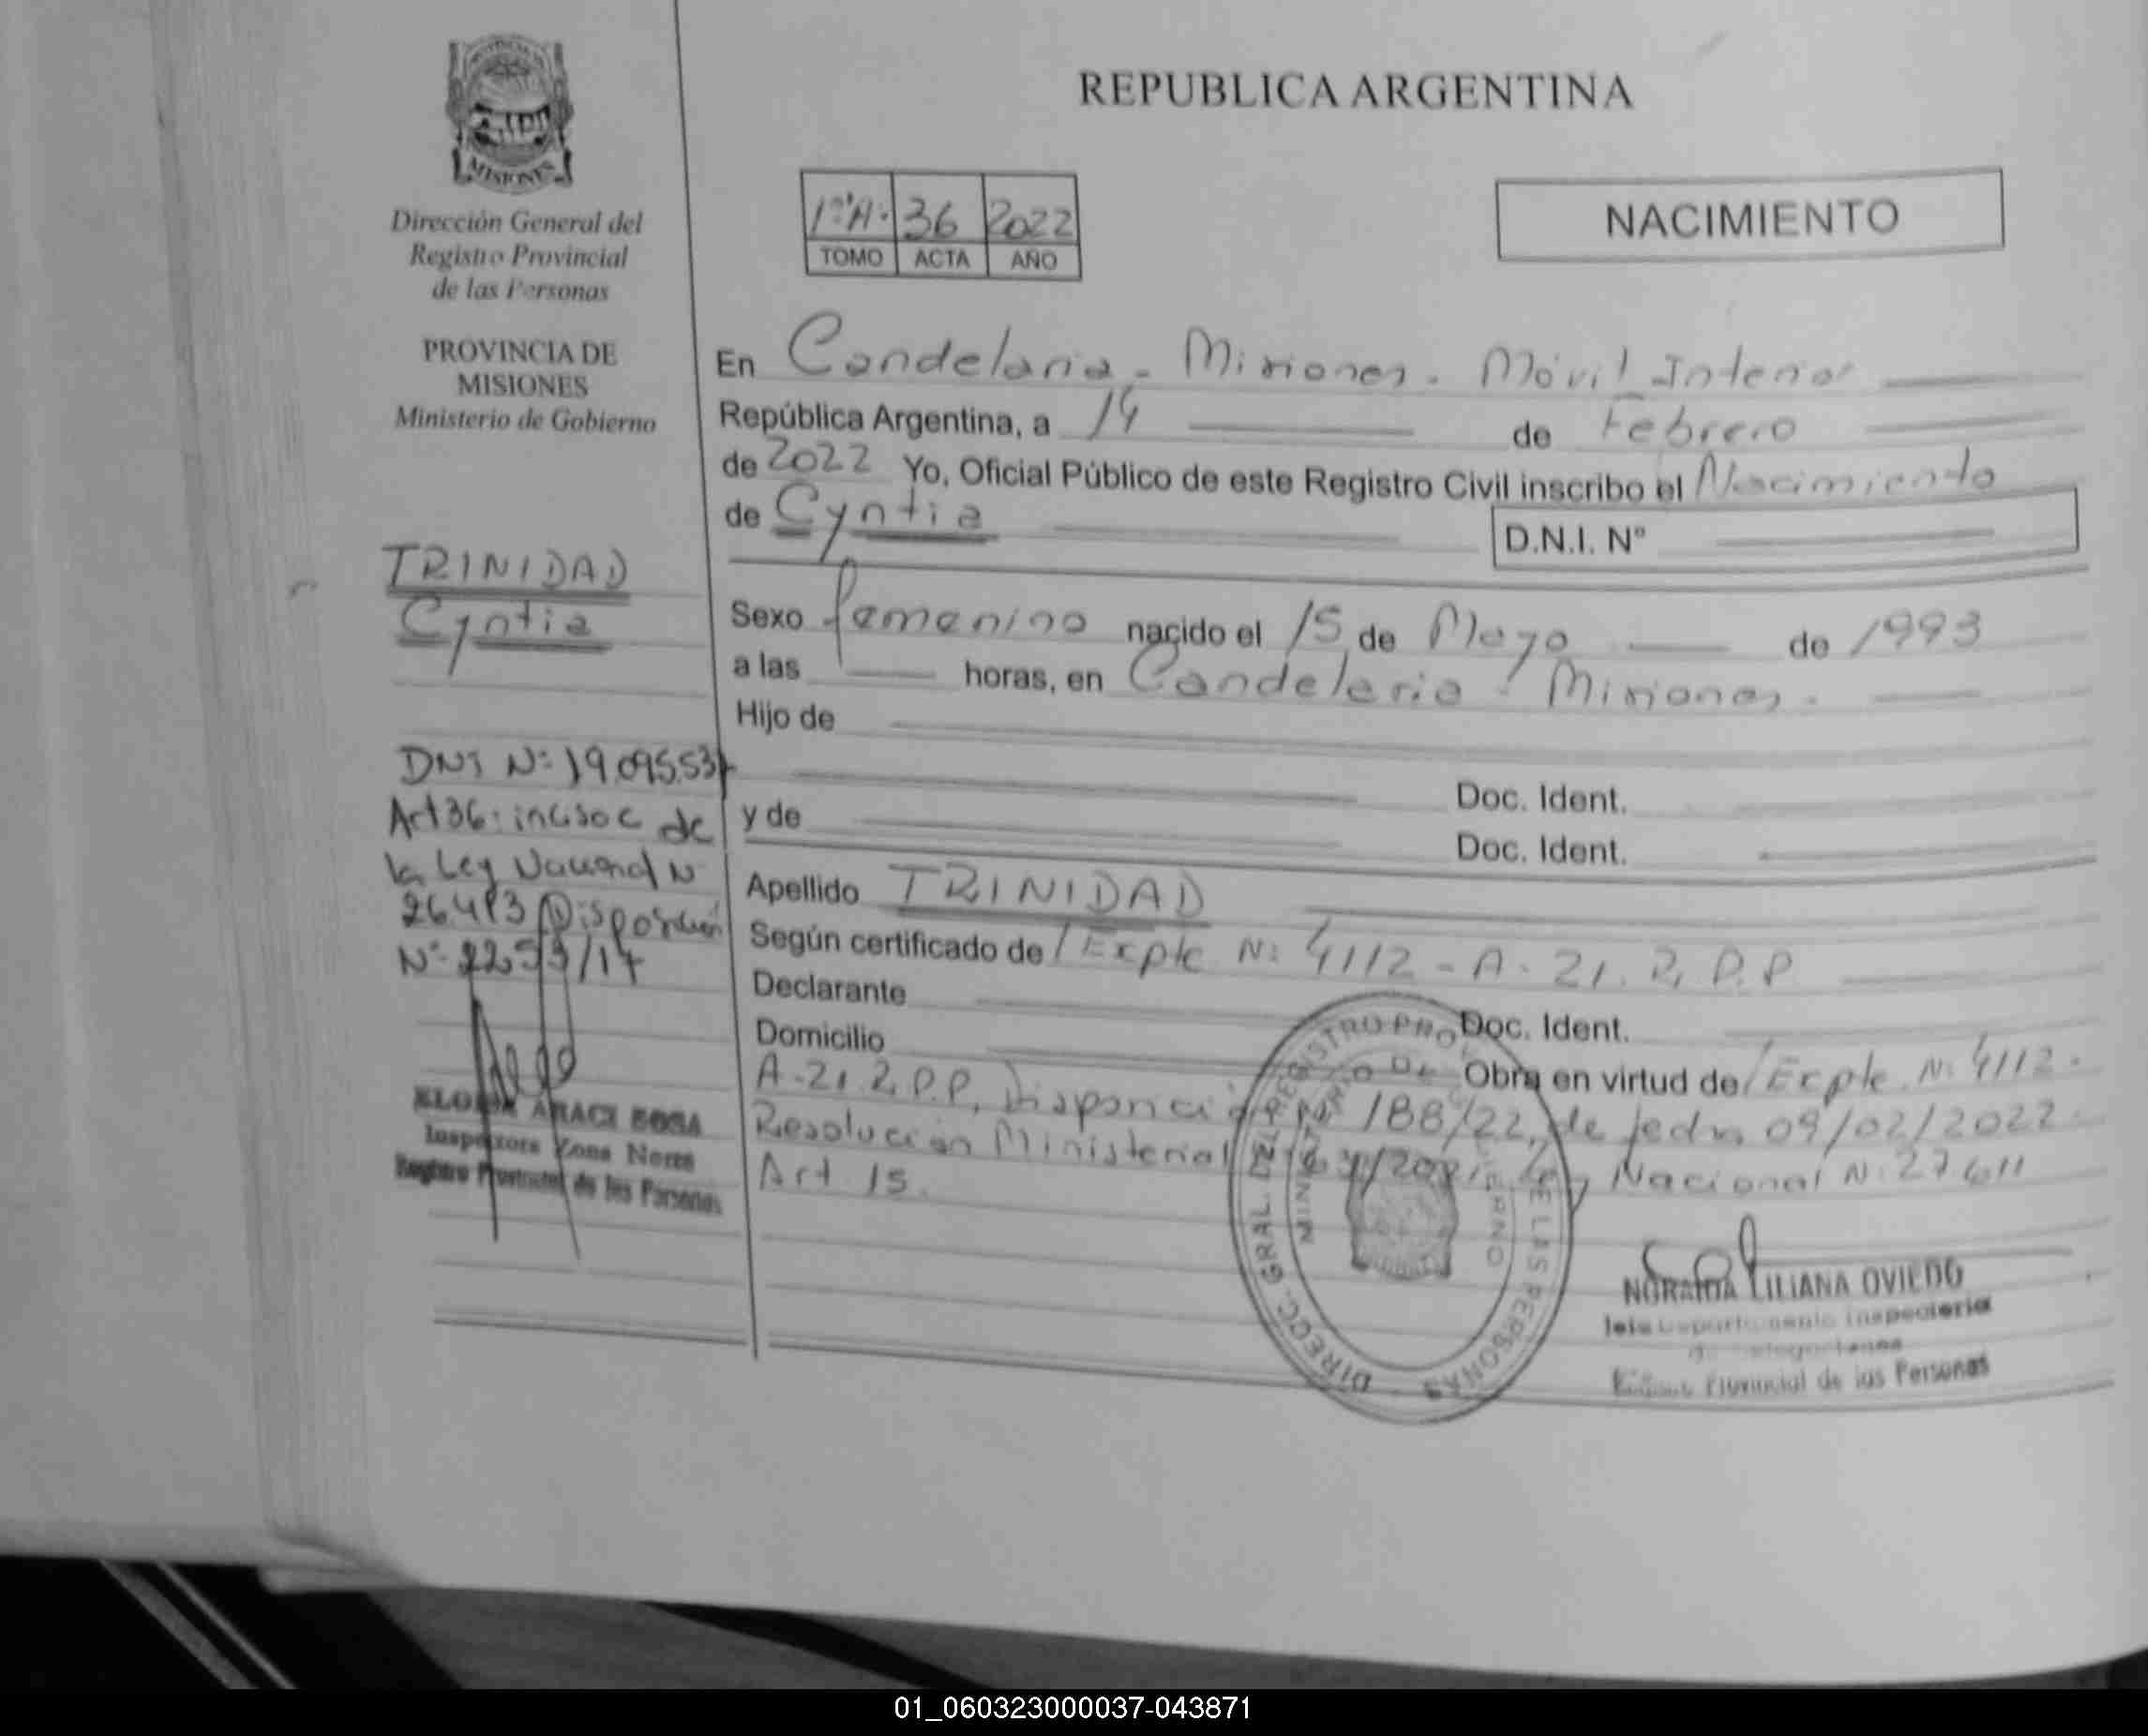 REPUBLICA ARGENTINA
MISIONES
Dirección General del
Registro Provincial
de las Personas
PROVINCIA DE
MISIONES
Ministerio de Gobierno
1º"A" 36 2022
TOMO ACTA AÑO
NACIMIENTO
En Candelaria - Misiones - Móvil Interior
República Argentina, a 14 de Febrero
de 2022 Yo, Oficial Público de este Registro Civil inscribo el Nacimiento
de Cyntia D.N.I. Nº
Sexo femenino nacido el 15 de Mayo de 1993
a las horas, en Candelaria - Misiones.
Hijo de
Doc. Ident.
y de
Doc. Ident.
Apellido TRINIDAD
Según certificado de /Expte Nº 4112 - A - 21. R.P.P
Declarante
Doc. Ident.
Domicilio
Obra en virtud de /Expte. Nº 4112 -
A-21 R.P.P, Disposición Nº 188/22, de fecha 09/02/2022
Resolución Ministerial Ley Nacional Nº 27.611
Art 15.
TRINIDAD
Cyntia
DNI Nº 19.095.53
Art 36: inciso c de
la Ley Nacional Nº
26.413 Disposición
Nº
ARACI SOSA
Inspectora Zona Norte
Registro Provincial de las Personas
DIRECC. GRAL. DEL REGISTRO PROV DE LAS PERSONAS
MINISTERIO DE GOBIERNO
NORAIDA LILIANA OVIEDO
Jefe Departamento Inspectoria
Provincial de las Personas
01_060323000037-043871